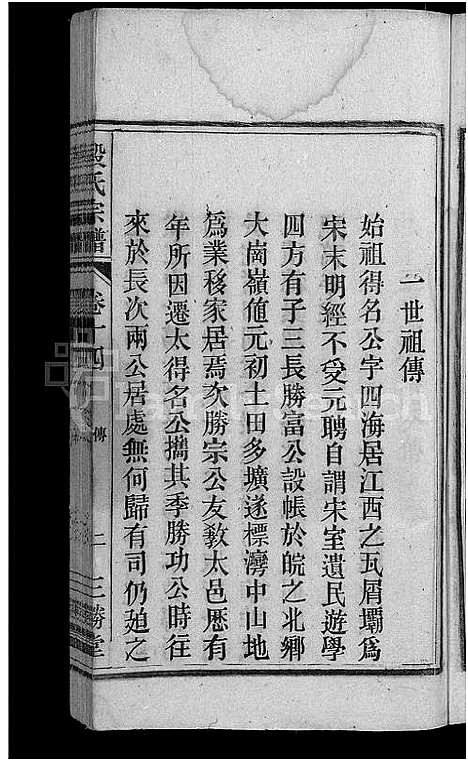 一世祖傳
始祖得名公字四海居江西之瓦屑壩爲
宋末明經不受元聘自謂宋室遺民遊學
四方有子三長勝富公設帳於皖之北鄉
大崗嶺値元初土田多壙遂標灣中山地
爲業移家居焉次勝宗公友敎太邑歷有
年所因遷太得名公攜其季勝功公時往
來於長次兩公居處無何歸有司仍廹之
殷氏宗譜
卷十四
傳
二
三勝堂